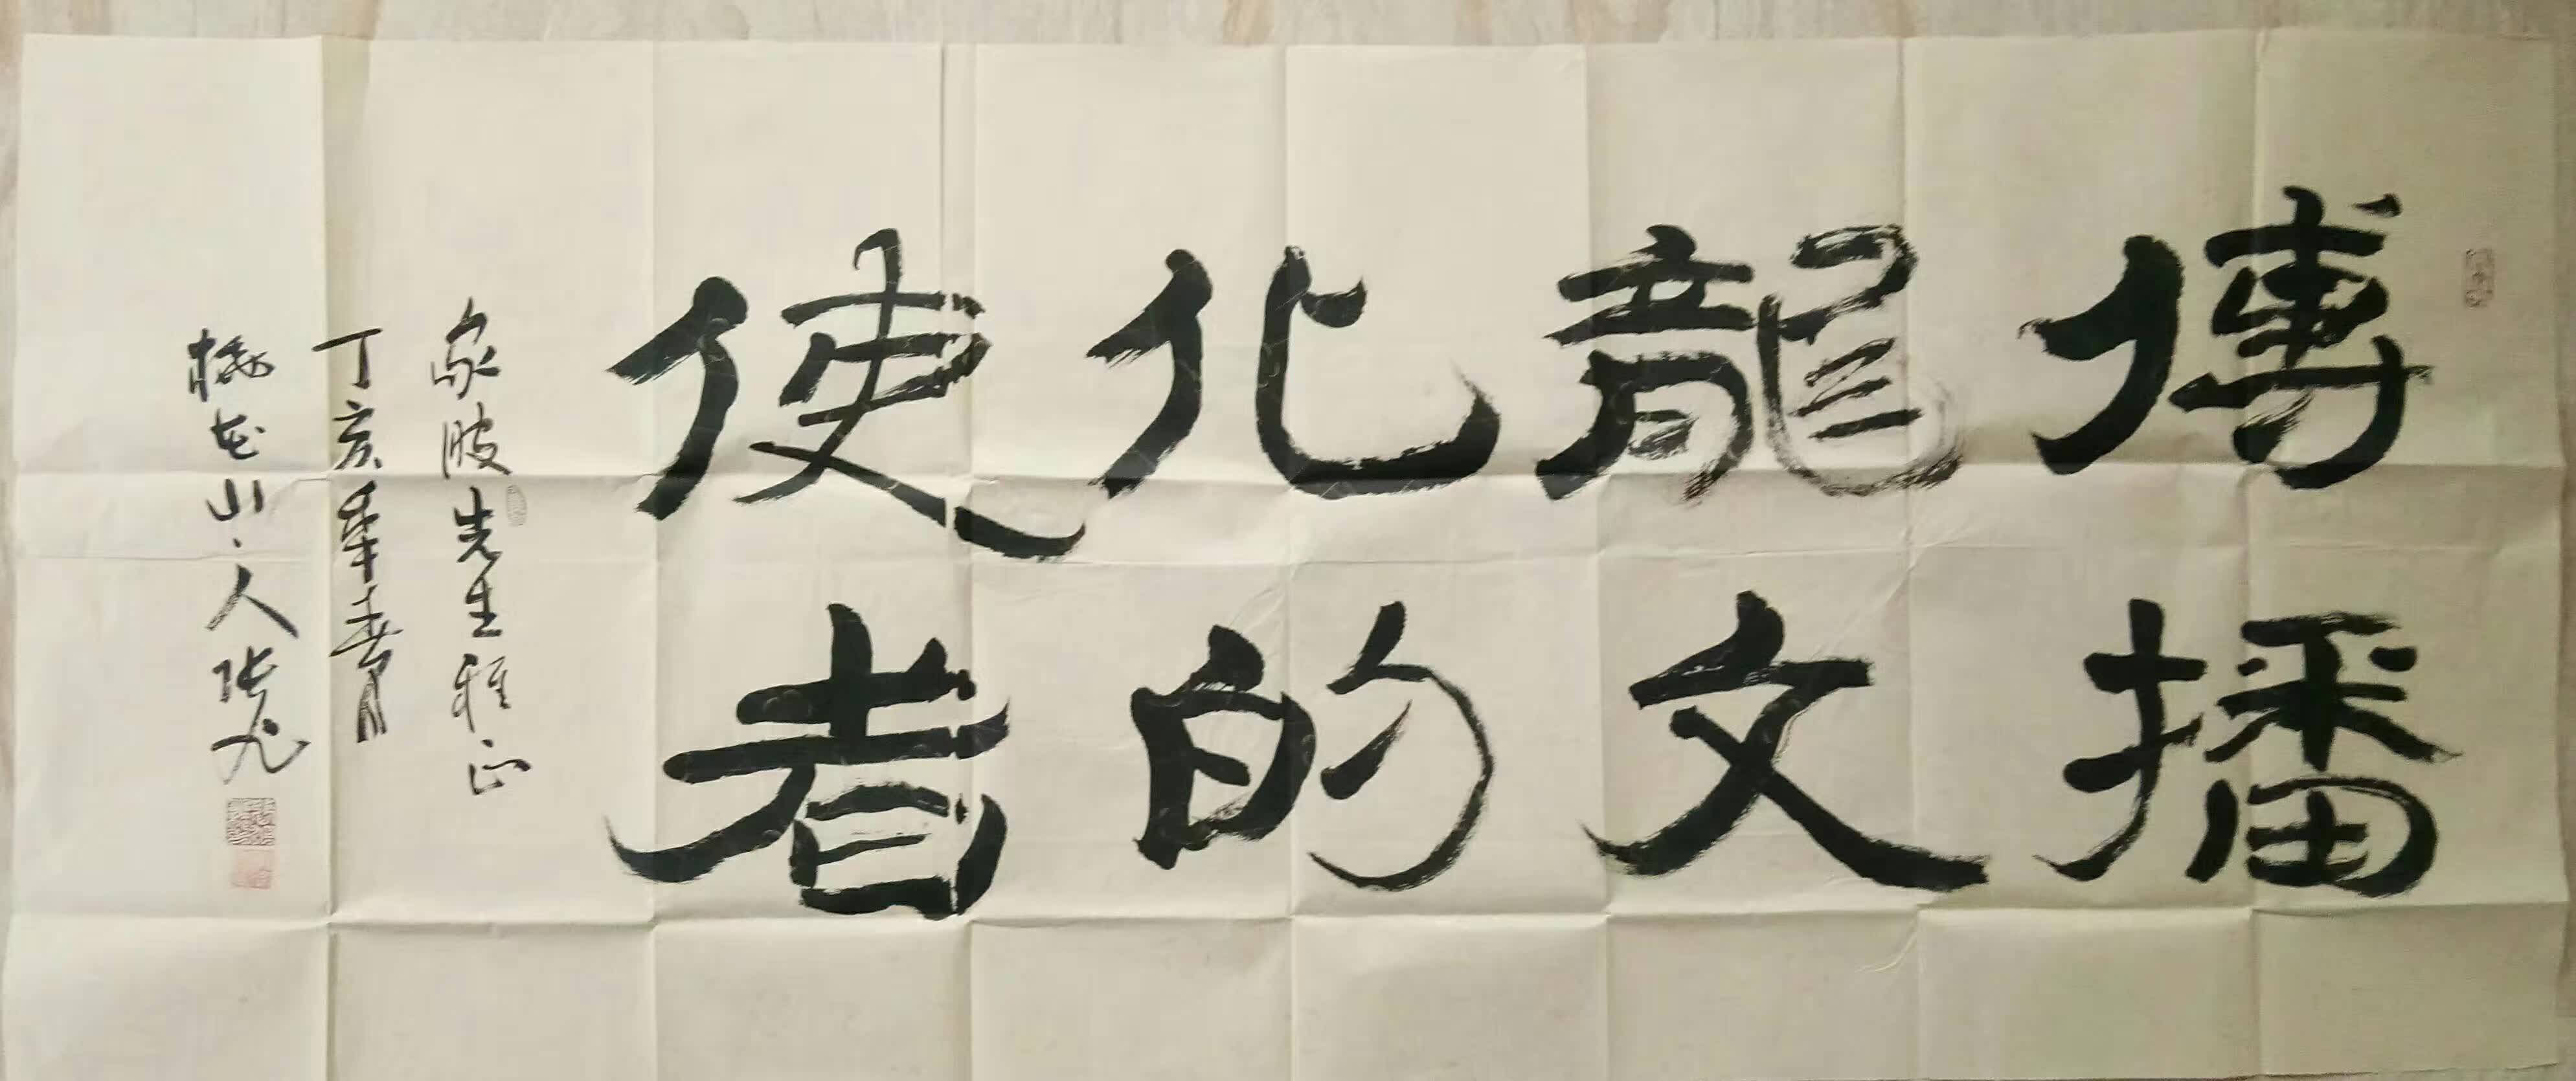 傳播
龍文
化的
使者
家波先生雅正
丁亥年春月
花山人張